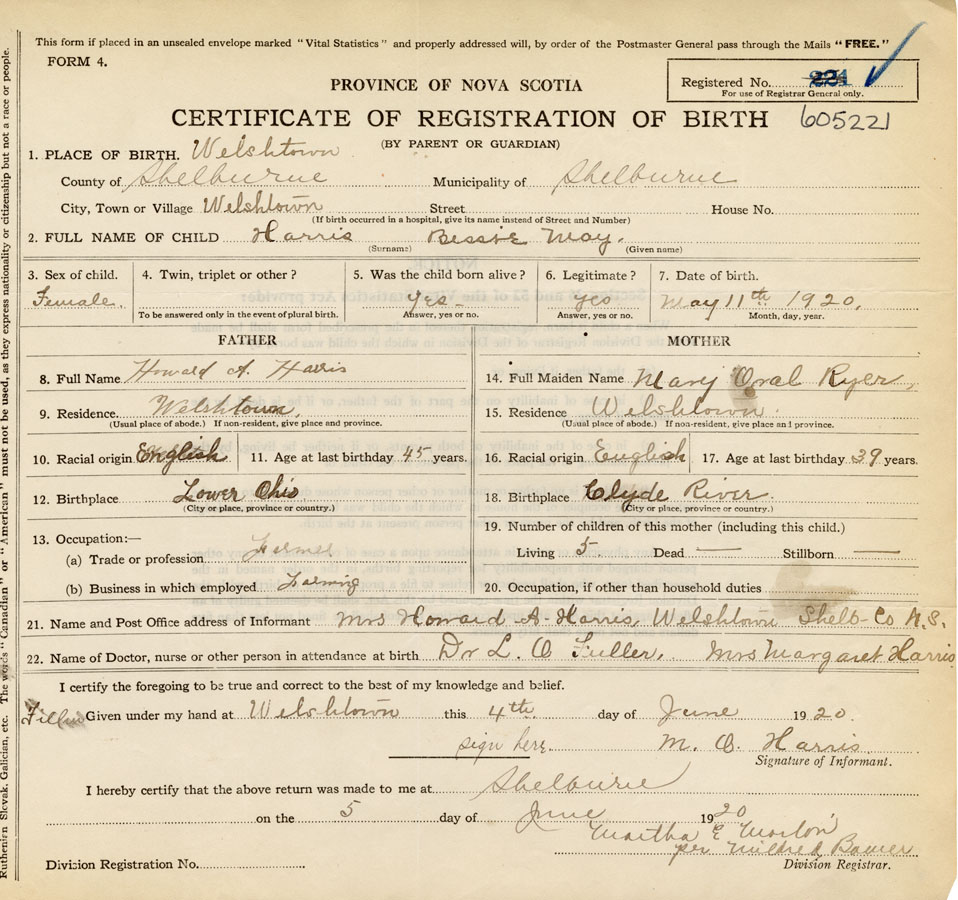 This form if placed in an unsealed envelope marked "Vital Statistics" and properly addressed will, by order of the Postmaster General pass through the Mails "FREE."
FORM 4.
PROVINCE OF NOVA SCOTIA
Registered No. 221
For use of Registrar General only.
CERTIFICATE OF REGISTRATION OF BIRTH 605221
(BY PARENT OR GUARDIAN)
1. PLACE OF BIRTH. Welshtown
County of Shelburne Municipality of Shelburne
City, Town or Village Welshtown Street House No.
(If birth occurred in a hospital, give its name instead of Street and Number)
2. FULL NAME OF CHILD Harris Bessie May.
(Surname) (Given name)
3. Sex of child. 4. Twin, triplet or other? 5. Was the child born alive? 6. Legitimate? 7. Date of birth.
Female. Yes Yes May 11th 1920.
To be answered only in the event of plural birth. Answer, yes or no. Answer, yes or no. Month, day, year.
FATHER MOTHER
8. Full Name Howard A. Harris 14. Full Maiden Name Mary Oral Ryer,
9. Residence. Welshtown. 15. Residence Welshtown.
(Usual place of abode.) If non-resident, give place and province. (Usual place of abode.) If non-resident, give place and province.
10. Racial origin English 11. Age at last birthday 45 years. 16. Racial origin English 17. Age at last birthday 39 years.
12. Birthplace Lower Ohio 18. Birthplace Clyde River.
(City or place, province or country.) (City or place, province or country.)
13. Occupation:— 19. Number of children of this mother (including this child.)
(a) Trade or profession Farmer Living 5 Dead — Stillborn —
(b) Business in which employed Farming 20. Occupation, if other than household duties
21. Name and Post Office address of Informant Mrs Howard A. Harris, Welshtown Shelb- Co N.S.
22. Name of Doctor, nurse or other person in attendance at birth Dr L. O Fuller, Mrs Margaret Harris
I certify the foregoing to be true and correct to the best of my knowledge and belief.
Given under my hand at Welshtown this 4th day of June 1920.
sign here. M. O. Harris
Signature of Informant.
I hereby certify that the above return was made to me at Shelburne
on the 5 day of June 1920
Martha E Morton
per Mildred Bower
Division Registration No. Division Registrar.
Ruthenian Slovak, Galician, etc. The words "Canadian" or "American" must not be used, as they express nationality or citizenship but not a race or people.